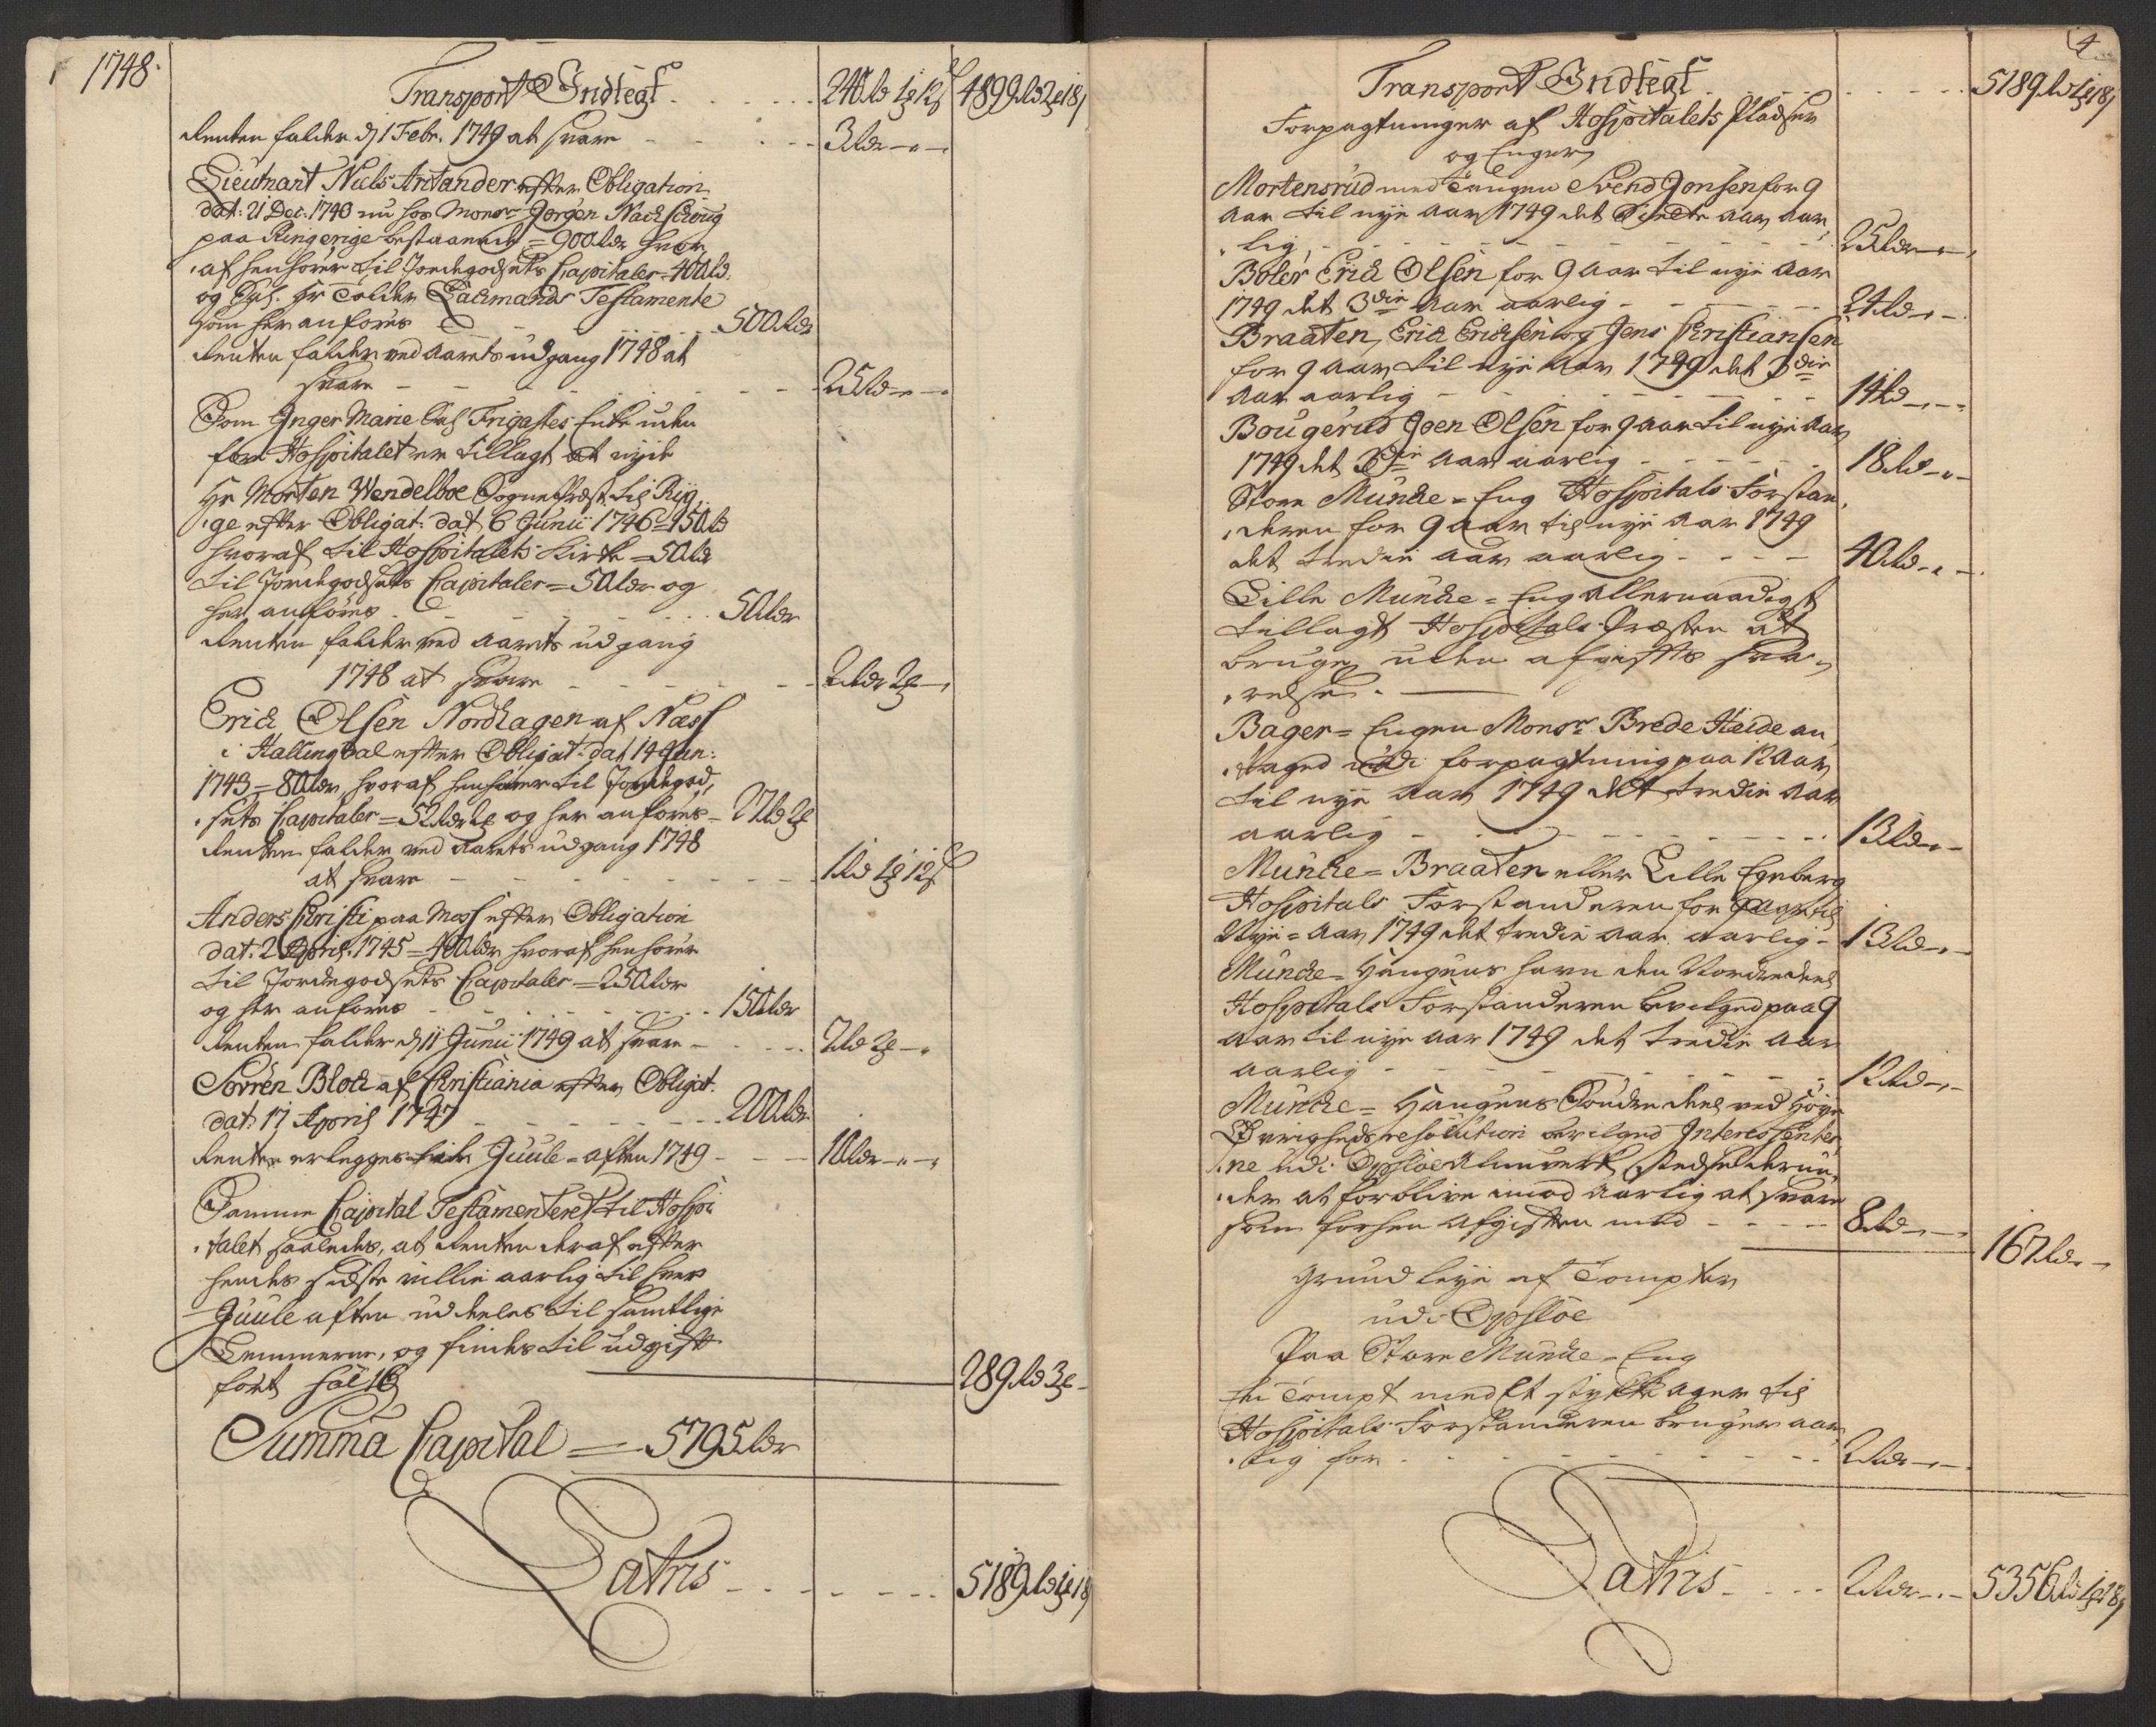 1748.
Transport Indtegt . . . . . . 240 rd 1 ₰ 12 s 4899 rd 2 ₰ 18 s
Renten falder d. 1 Febr. 1749 at svare - - - 3 rdr - „ -
Lieutnant Niels Aritander efter Obligation
dat: 21 Dec: 1740 nu hos Monsr Jørgen Nachschoug
paa Ringerige bestaaende = 900 rdr hvor,
,af henhører til Jordegodsets Capitaler = 400 rd:
og Sal. Hr Tolder Lachmands Testamente
som her anføres - - - 500 rdr
Renten falder ved Aarets udgang 1748 at
svare - - - 25 rd - „ -
Som Inger Marie Sal Frigastes Enke uden
for Hospitalet er tillagt at nyde
Hr Morten Wendelboe Sogne Præst til Ryg,
,ge efter Obligat: dat 6 Junii 1746 = 150 rd
hvoraf til Hospitalets Kirke = 50 rdr
til Jordegodsets Capitaler = 50 rdr og
her anføres - - - 50 rdr
Renten falder ved Aarets udgang
1748 at svare - - - 2 rdr 2 ₰ -
Erich Olsen Nordhagen af Næss
i Hallingdal efter Obligat: dat 14 Jan:
1743 = 80 rdr, hvoraf henhører til Jordegod,
,sets Capitaler = 52 rdr 2 ₰ og her anføres - 27 rd 2 ₰
Renten falder ved Aarets udgang 1748
at svare - - - 1 rd 1 ₰ 12 s
Anders Christi paa Moss efter Obligation
dat: 2 April 1745 = 400 rdr hvoraf henhører
til Jordegodsets Capitaler = 250 rdr
og her anføres - - - 150 rdr
Renten falder d. 11 Junii 1749 at svare - - - 7 rd 2 ₰ -
Sørren Bloch af Christiania efter Obligat:
dat: 17 April 1747 - - - 200 rdr
Renten erlegges Juule - aften 1749 - - - 10 rdr - „ -
Samme Capital Testamenteret til Hospi
,talet saaledes, at Renten deraf efter
hendes sidste villie aarlig til hver
Juule aften uddeeles til samtlige
Lemmerne, og findes til udgift
ført fol 16 289 rd 3 ₰ -
Summa Capital = 5795 rdr
Latris - - - 5189 rd 1 ₰ 18 s
4
Transport Indtegt - - - 5189 rd 1 ₰ 18 s
Forpagtninger af Hospitalets Pladser
og Enger
Mortensrud med Tangen Svend Jonsen for 9
Aar til nye Aar 1749 det Aar aar,
,lig - - - 25 rdr - „ -
Boler Erich Olsen for 9 Aar til nye Aar
1749 det 3die Aar aarlig - - - 24 rd - „ -
Braaten, Erich Erichsen og Jens Christiansen
for 9 Aar til nye Aar 1749 det 3die
Aar aarlig - - - 14 rd - „ -
Bougerud Joen Olsen for 9 Aar til nye Aar
1749 det 3die Aar aarlig - - - 18 rd - „ -
Store Munche = Eng Hospitals Forstan,
,deren for 9 aar til nye Aar 1749
det tredie Aar aarlig - - - 40 rd - „ -
Lille Munche = Eng Allernaadigst
tillagt Hospitals Præsten at
bruge uden afgifts sva,
,relse.
Bager = Engen Monsr Brede Heide an,
,taged udi forpagtning paa 12 Aar,
til nye Aar 1749 det tredie Aar
aarlig - - - 13 rd - „ -
Munche = Braaten eller Lille Egeberg
Hospitals Forstanderen for 9 Aar til
Nye = Aar 1749 det tredie Aar aarlig - 13 rd - „ -
Munche = Haugens havn den Nordre deel
Hospitals Forstanderen bevilged paa 9
Aar til nye Aar 1749 det tredie Aar
aarlig - - - 12 rd - „ -
Munche = Haugens Søndre deel ved Høye
Øvrigheds resolution bevilged Interessenter,
,ne udi Opsloe Alunverk, stedse derun,
,der at forblive imod Aarlig at svare
som forhen Afgiften med - - - 8 rd - „ -
167 rdr -
Grundleye af Tompter
udi Opsloe
Paa Store Munche - Eng
En Tompt med Et stykke ager til
Hospitals Forstanderen bruger aar,
,lig for - - - 2 rdr - „ -
Latris - - - 2 rdr - „ - 5356 rd 1 ₰ 18 s